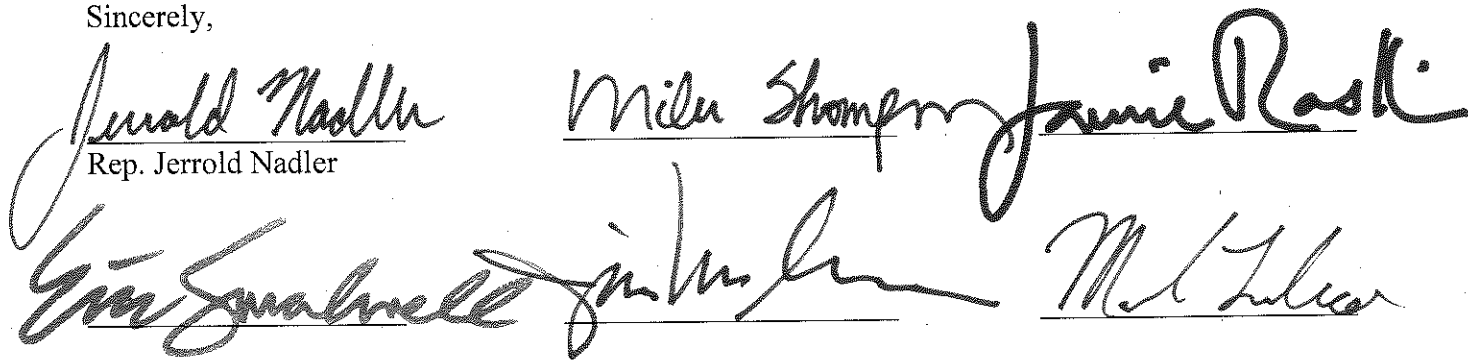 Sincerely,
Jerrold Nadler Mike Thompson Jamie Raskin
Rep. Jerrold Nadler
Eric Swalwell Jim